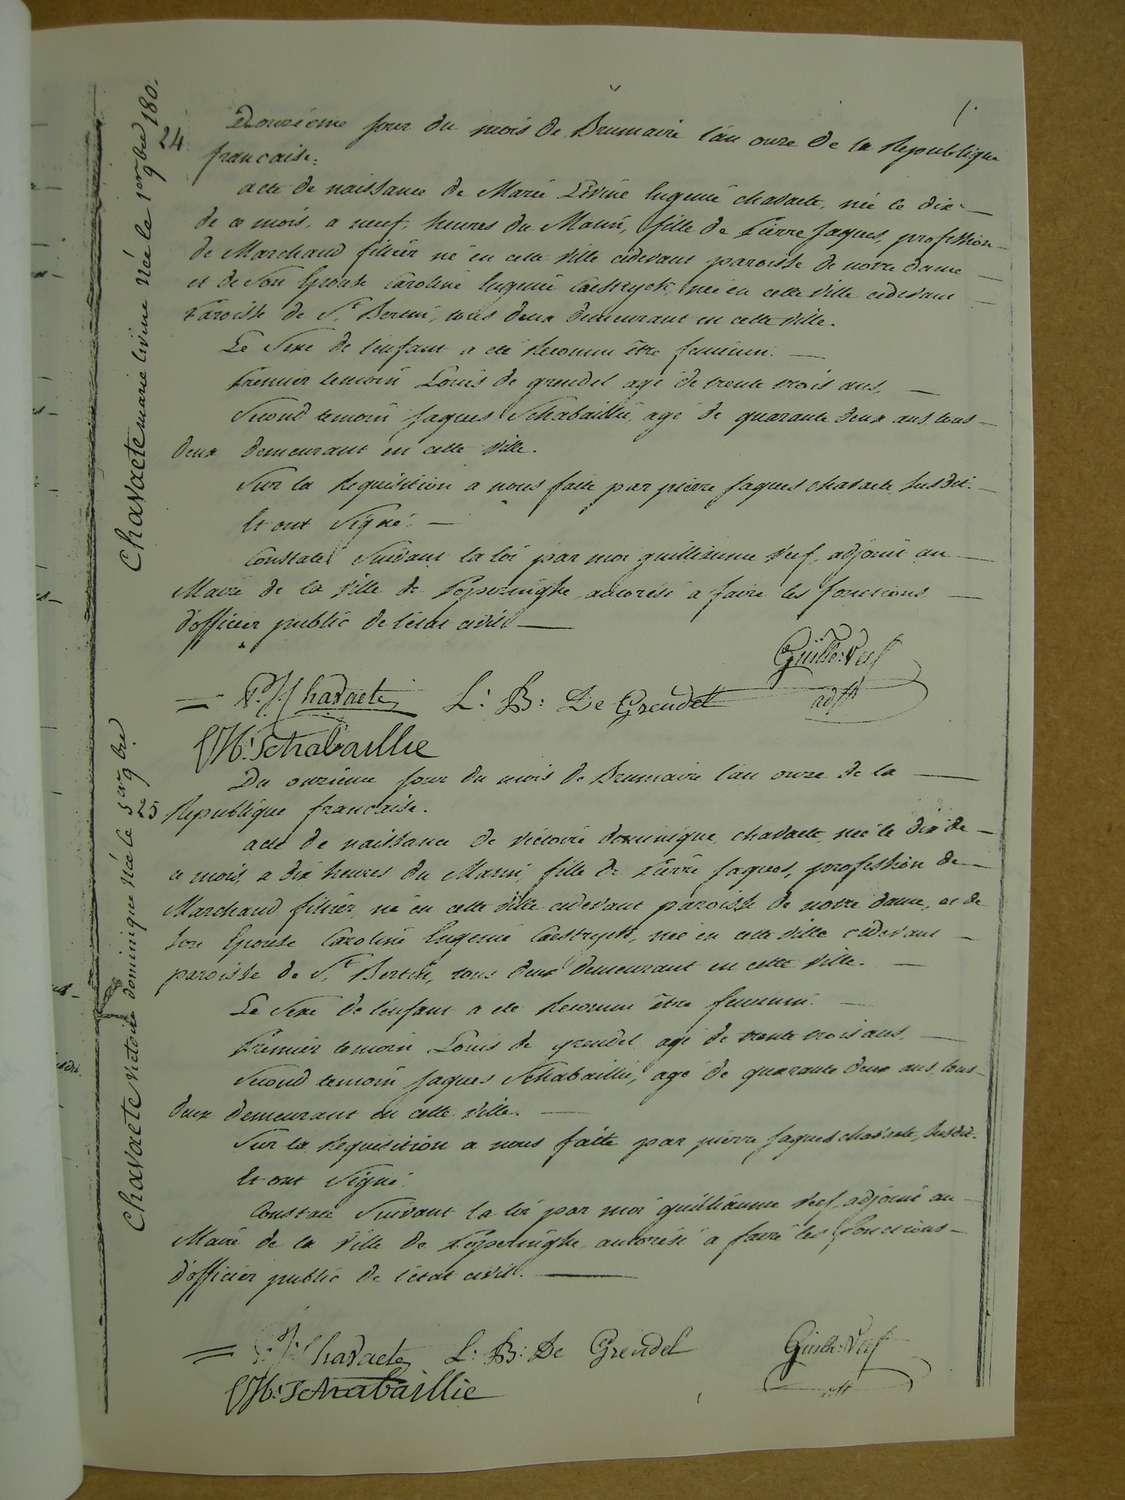 Chavaete marie livine née le 1er 9bre 180.
24
Douzième jour du mois de Brumaire l'an onze de la Republique
francaise.
acte de naissance de Marie Livine Eugenie chavaete, née le dix
de ce mois, a neuf heures du Matin, fille de Pierre Jaques, profession
de Marchand fillier né en cette ville cidevant paroisse de notre dame
et de son Epouse Caroline Eugenie Caestryck, née en cette ville cidevant
Paroisse de St Bertin, tous deux demeurant en cette ville.
Le Sexe de l'enfant a eté Reconnu être feminin.
Premier temoin Louis de grendel agé de trente trois ans,
Second temoin Jaques Schabaillie, agé de quarante deux ans tous
deux demeurant en cette ville.
Sur la Requisition a nous faite par pierre Jaques chavaete susdit.
Et ont Signé.
Constaté Suivant la loi par moi guilliaume Verf, adjoint au
Maire de la Ville de Poperinghe, autorisé a faire les fonctions
d'officier public de l'état civil.
Guille: Verf
adjt
P. J. Chavaete L: B: De Grendel
Schabaillie
Chavaete victoire dominique née le 5er 9bre
25
Du onzième jour du mois de Brumaire l'an onze de la
Republique francaise.
acte de naissance de victoire dominique chavaete, née le dix de
ce mois, a dix heures du Matin, fille de Pierre Jaques, profession de
Marchand fillier, né en cette ville cidevant paroisse de notre dame, et de
son Epouse Caroline Eugenie Caestryck, née en cette ville cidevant
paroisse de St Bertin, tous deux demeurant en cette ville.
Le Sexe de l'enfant a eté Reconnu être feminin.
Premier temoin Louis de grendel agé de trente trois ans,
Second temoin Jaques Schabaillie, agé de quarante deux ans, tous
deux demeurant en cette ville.
Sur la Requisition a nous faite par pierre Jaques chavaete, susdit.
Et ont Signé.
Constaté Suivant la loi par moi guilliaume Verf, adjoint au
Maire de la Ville de Poperinghe autorisé a faire les fonctions
d'officier public de l'état civil.
P. J. Chavaete L: B: De Grendel Guille: Verf
Schabaillie